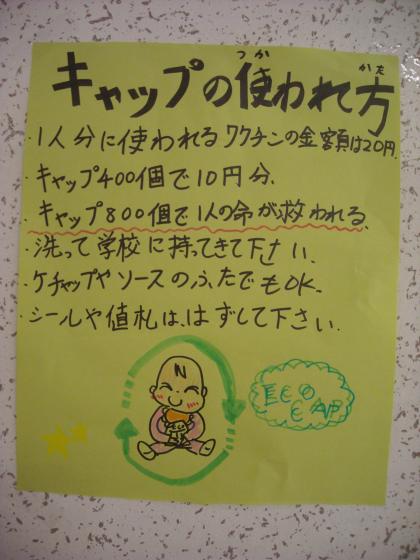 キャップの使われ方
つか
かた
・1人分に使われるワクチンの金額は20円
・キャップ400個で10円分.
・キャップ800個で1人の命が救われる.
・洗って学校に持ってきて下さい.
・ケチャップやソースのふたでもOK.
・シールや値札は、はずして下さい.
ECO
CAP